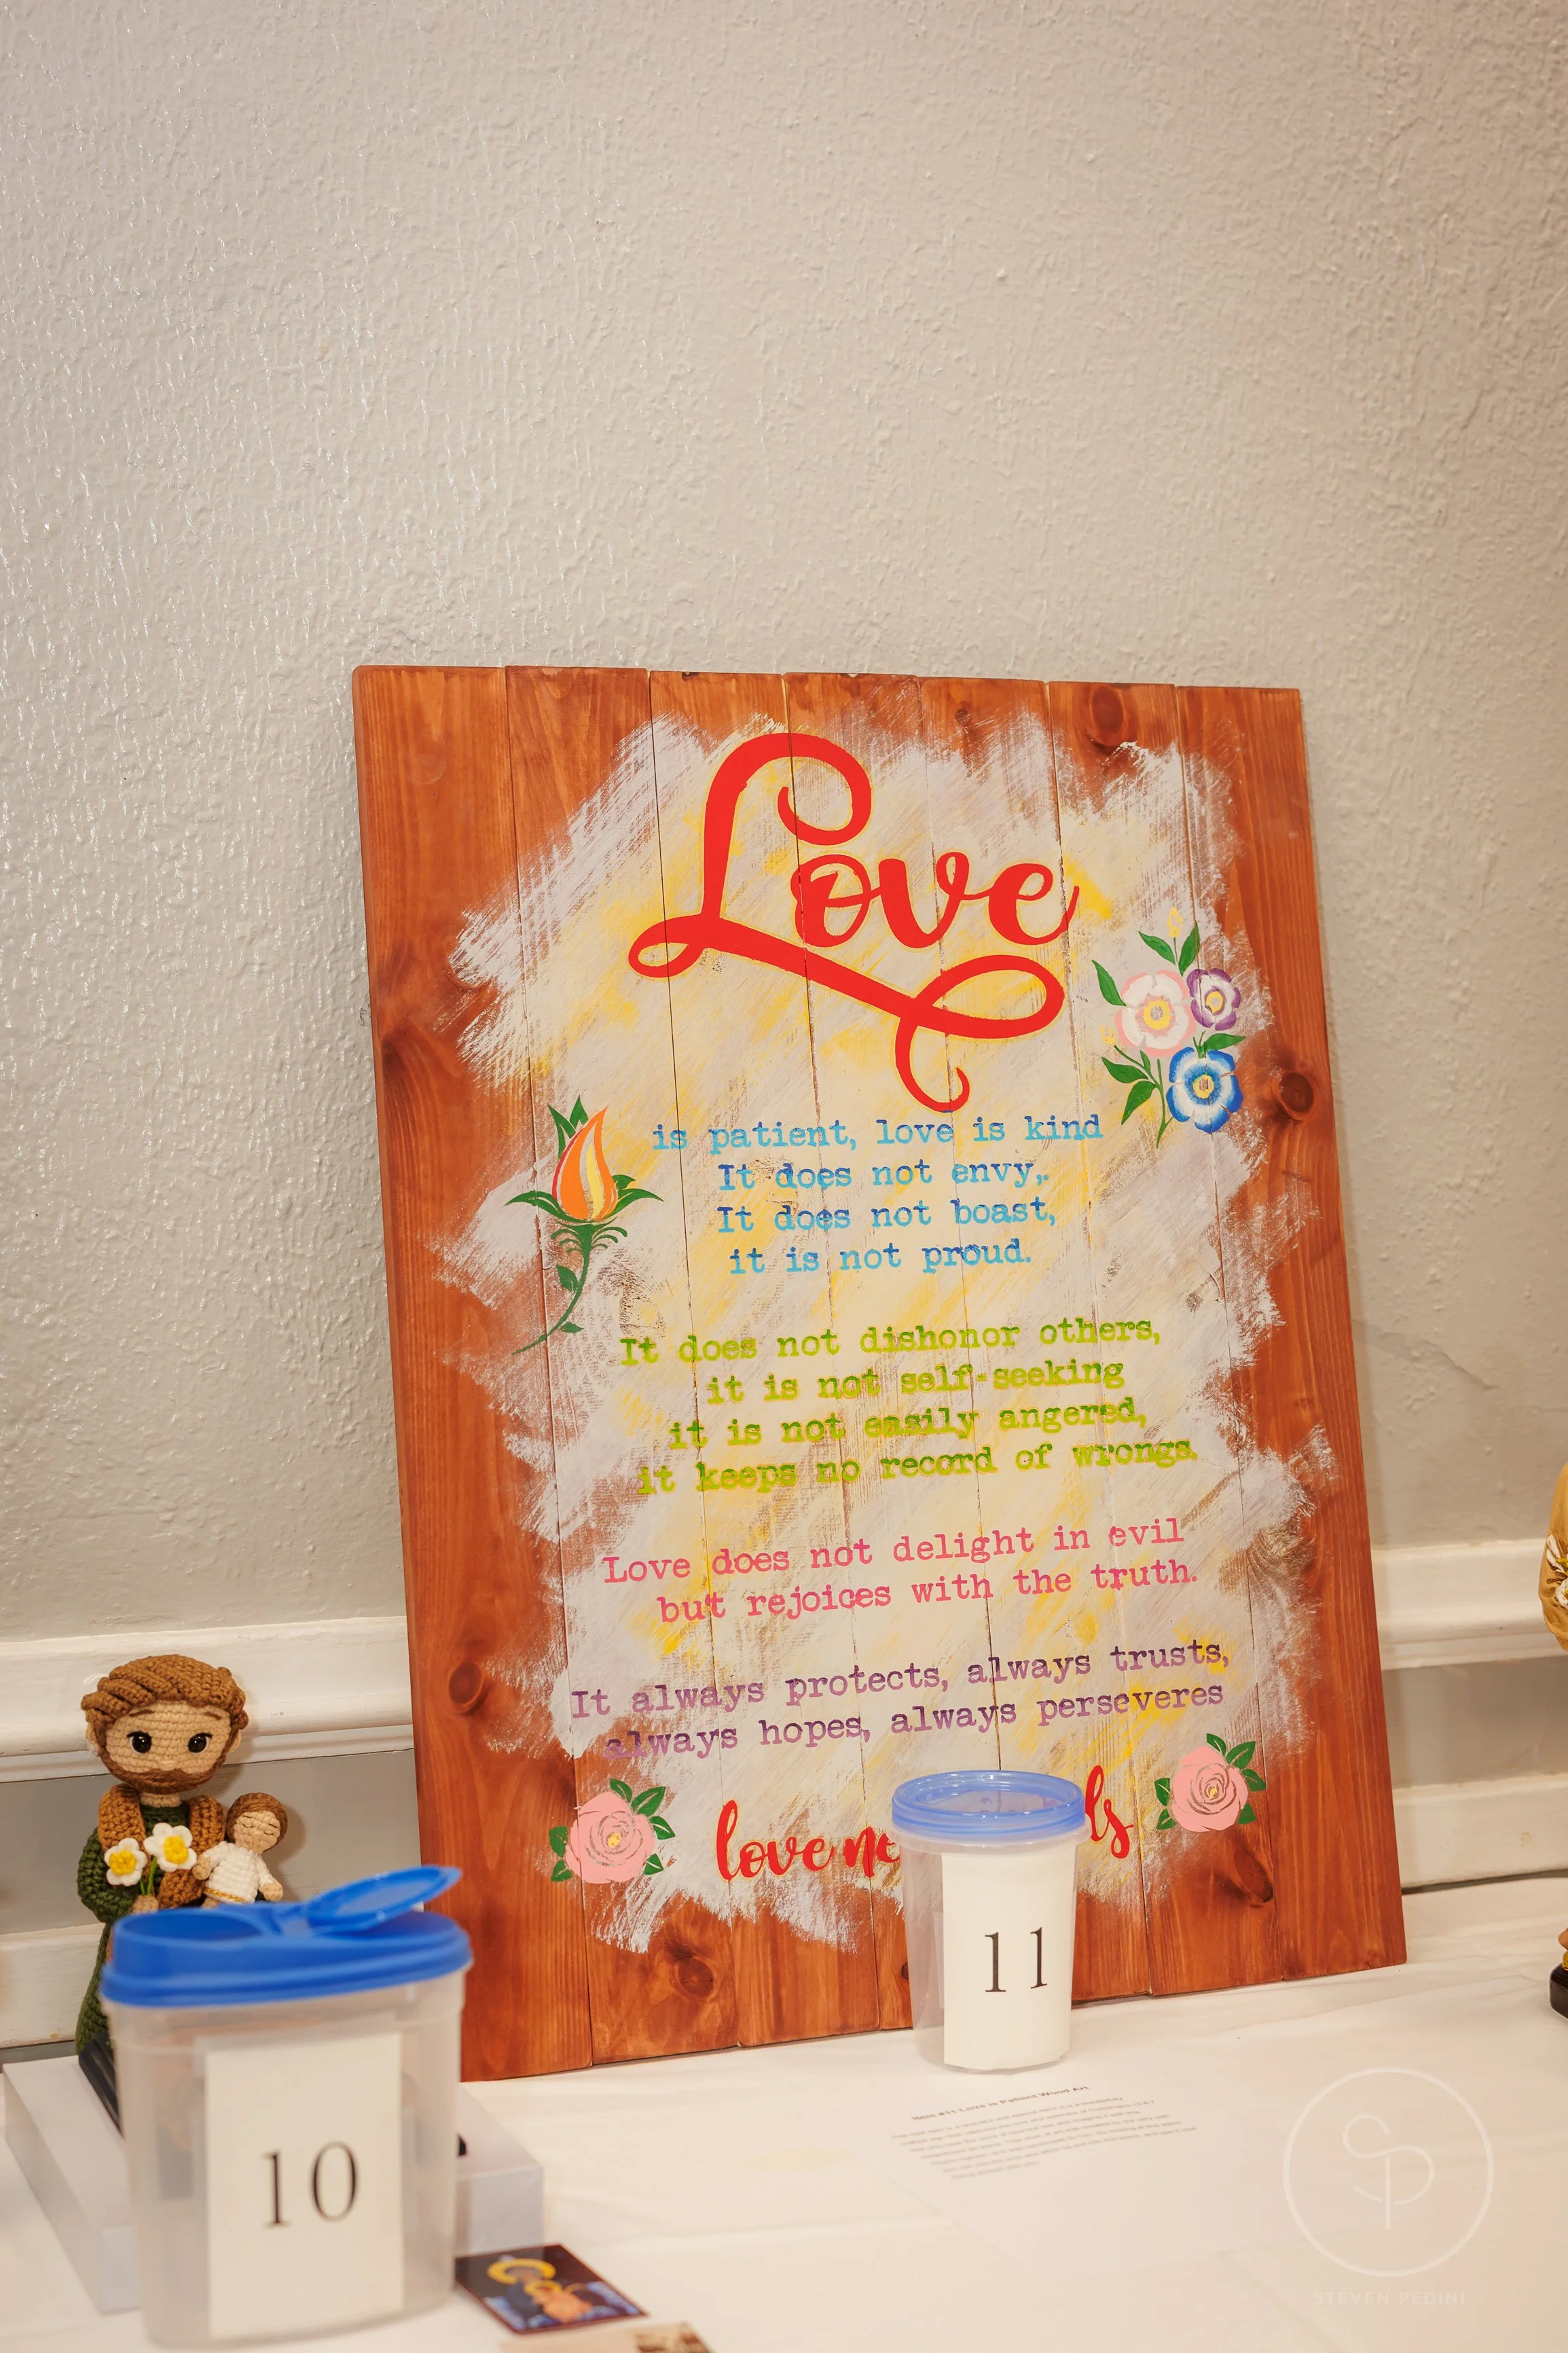 Love
is patient, love is kind
It does not envy,
It does not boast,
it is not proud.
It does not dishonor others,
it is not self-seeking
it is not easily angered,
it keeps no record of wrongs.
Love does not delight in evil
but rejoices with the truth.
It always protects, always trusts,
always hopes, always perseveres
love
11
10
Item #11 Love is Patient Wood Art
STEVEN PEDINI